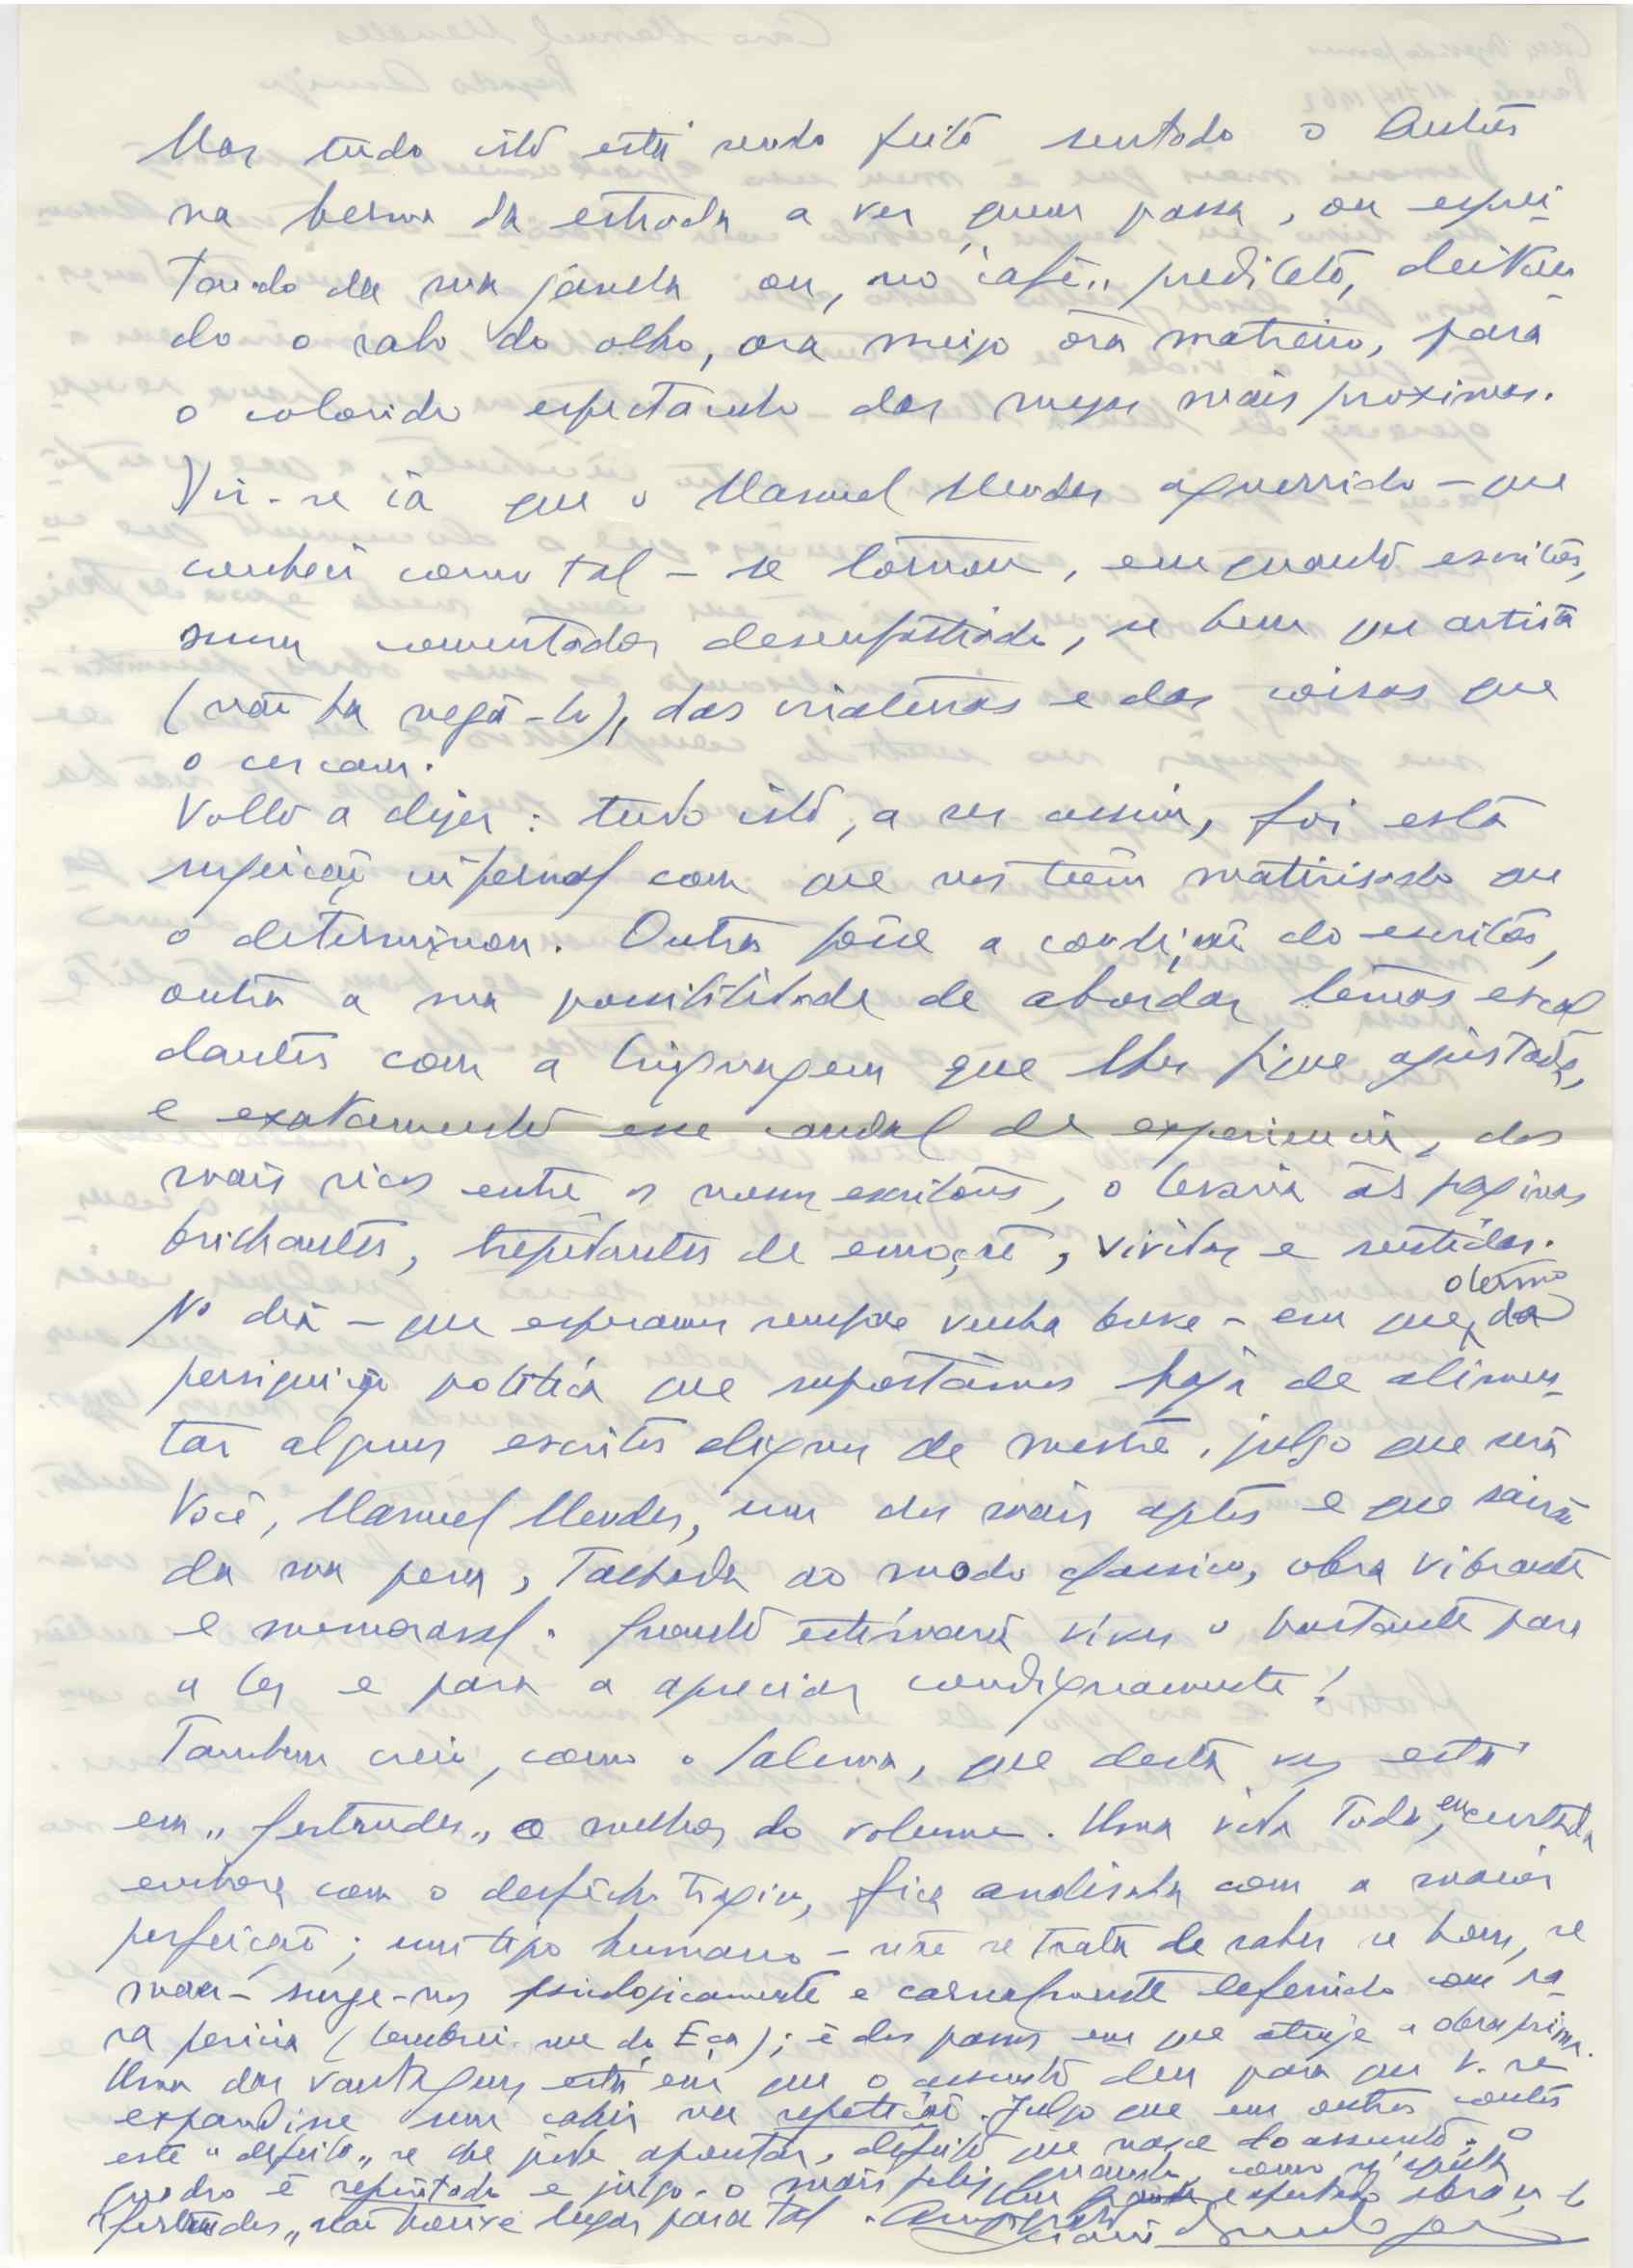 Mas tudo isto está sendo feito sentado o Autor
na berma da estrada a ver quem passa, ou esprei-
tando da sua janela ou, no "café" predileto, deitan-
do o rabo do olho, ora meigo ora matreiro, para
o colorido espectáculo das mesas mais proximas.
Vir-se-ia que o Manuel Mendes aguerrido - que
conheci como tal - se tornou, emquanto escritor,
num comentador desenfastiado, se bem que artista
(não há negá-lo), das criaturas e das coisas que
o cercam.
Volto a dizer: tudo isto, a ser assim, foi esta
sujeição infernal com que nos teem matirisado que
o determinou. Outra fosse a condição do escritor,
outra a sua possibilidade de abordar temas escal
dantes com a linguagem que lhes fique ajustada,
e exatamente esse caudal de experiencia, dos
mais ricos entre os nossos escritores, o levaria ás paginas
trepidantes de emoção, vividas e sentidas.
No dia - que esperamos sempre venha breve - em que o termo da
perseguição politica que suportamos haja de alimen-
tar alguns escritos dignos de mestre, julgo que será
Você, Manuel Mendes, um dos mais aptos e que sairá
da sua pena, talhada ao modo classico, obra vibrante
e memoravel. Quanto estimaria viver o bastante para
a ler e para a apreciar condignamente!
Tambem creio, como o Salema, que desta vez está
em "Gertrudes" o melhor do volume. Uma vida toda, encurtada
embora com o desfecho tragico, fica analisada com a maior
perfeição; um tipo humano - não se trata de saber se bom, se
mau - surge-nos psicologicamente e carnalmente definido com ra-
ra pericia (lembrei-me do Eça); é dos passos em que atinge a obra prima.
Uma das vantagens está em que o assunto deu para que V. se
expandisse sem cahir na repetição. Julgo que em outros contos
este "defeito" se lhe pode apontar, defeito que nasce do assunto: o
quadro é repintado e julgo-o mais feliz quando,
"Gertrudes" não houve lugar para tal.